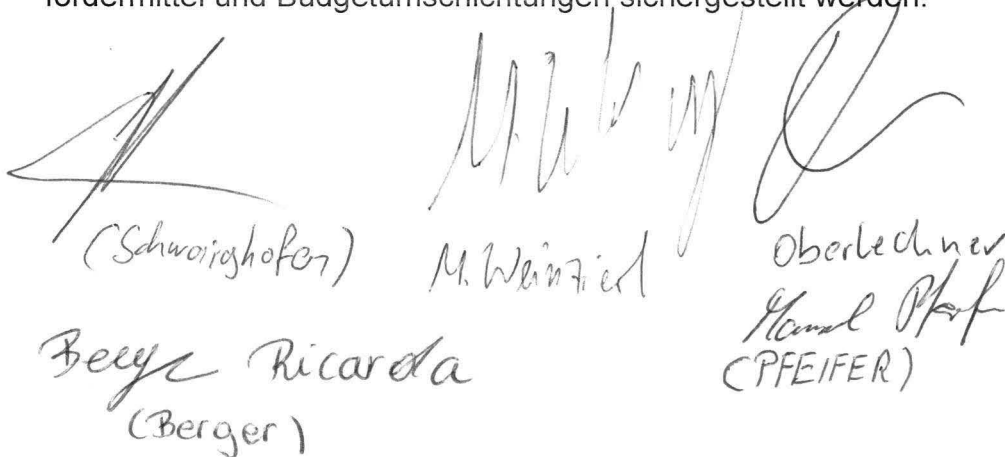 fördermittel und Budgetumschichtungen sichergestellt werden.
(Schwaighofer)
M. Weinzierl
Oberlechner
Manuel Pfeifer
(PFEIFER)
Berger Ricarda
(Berger)